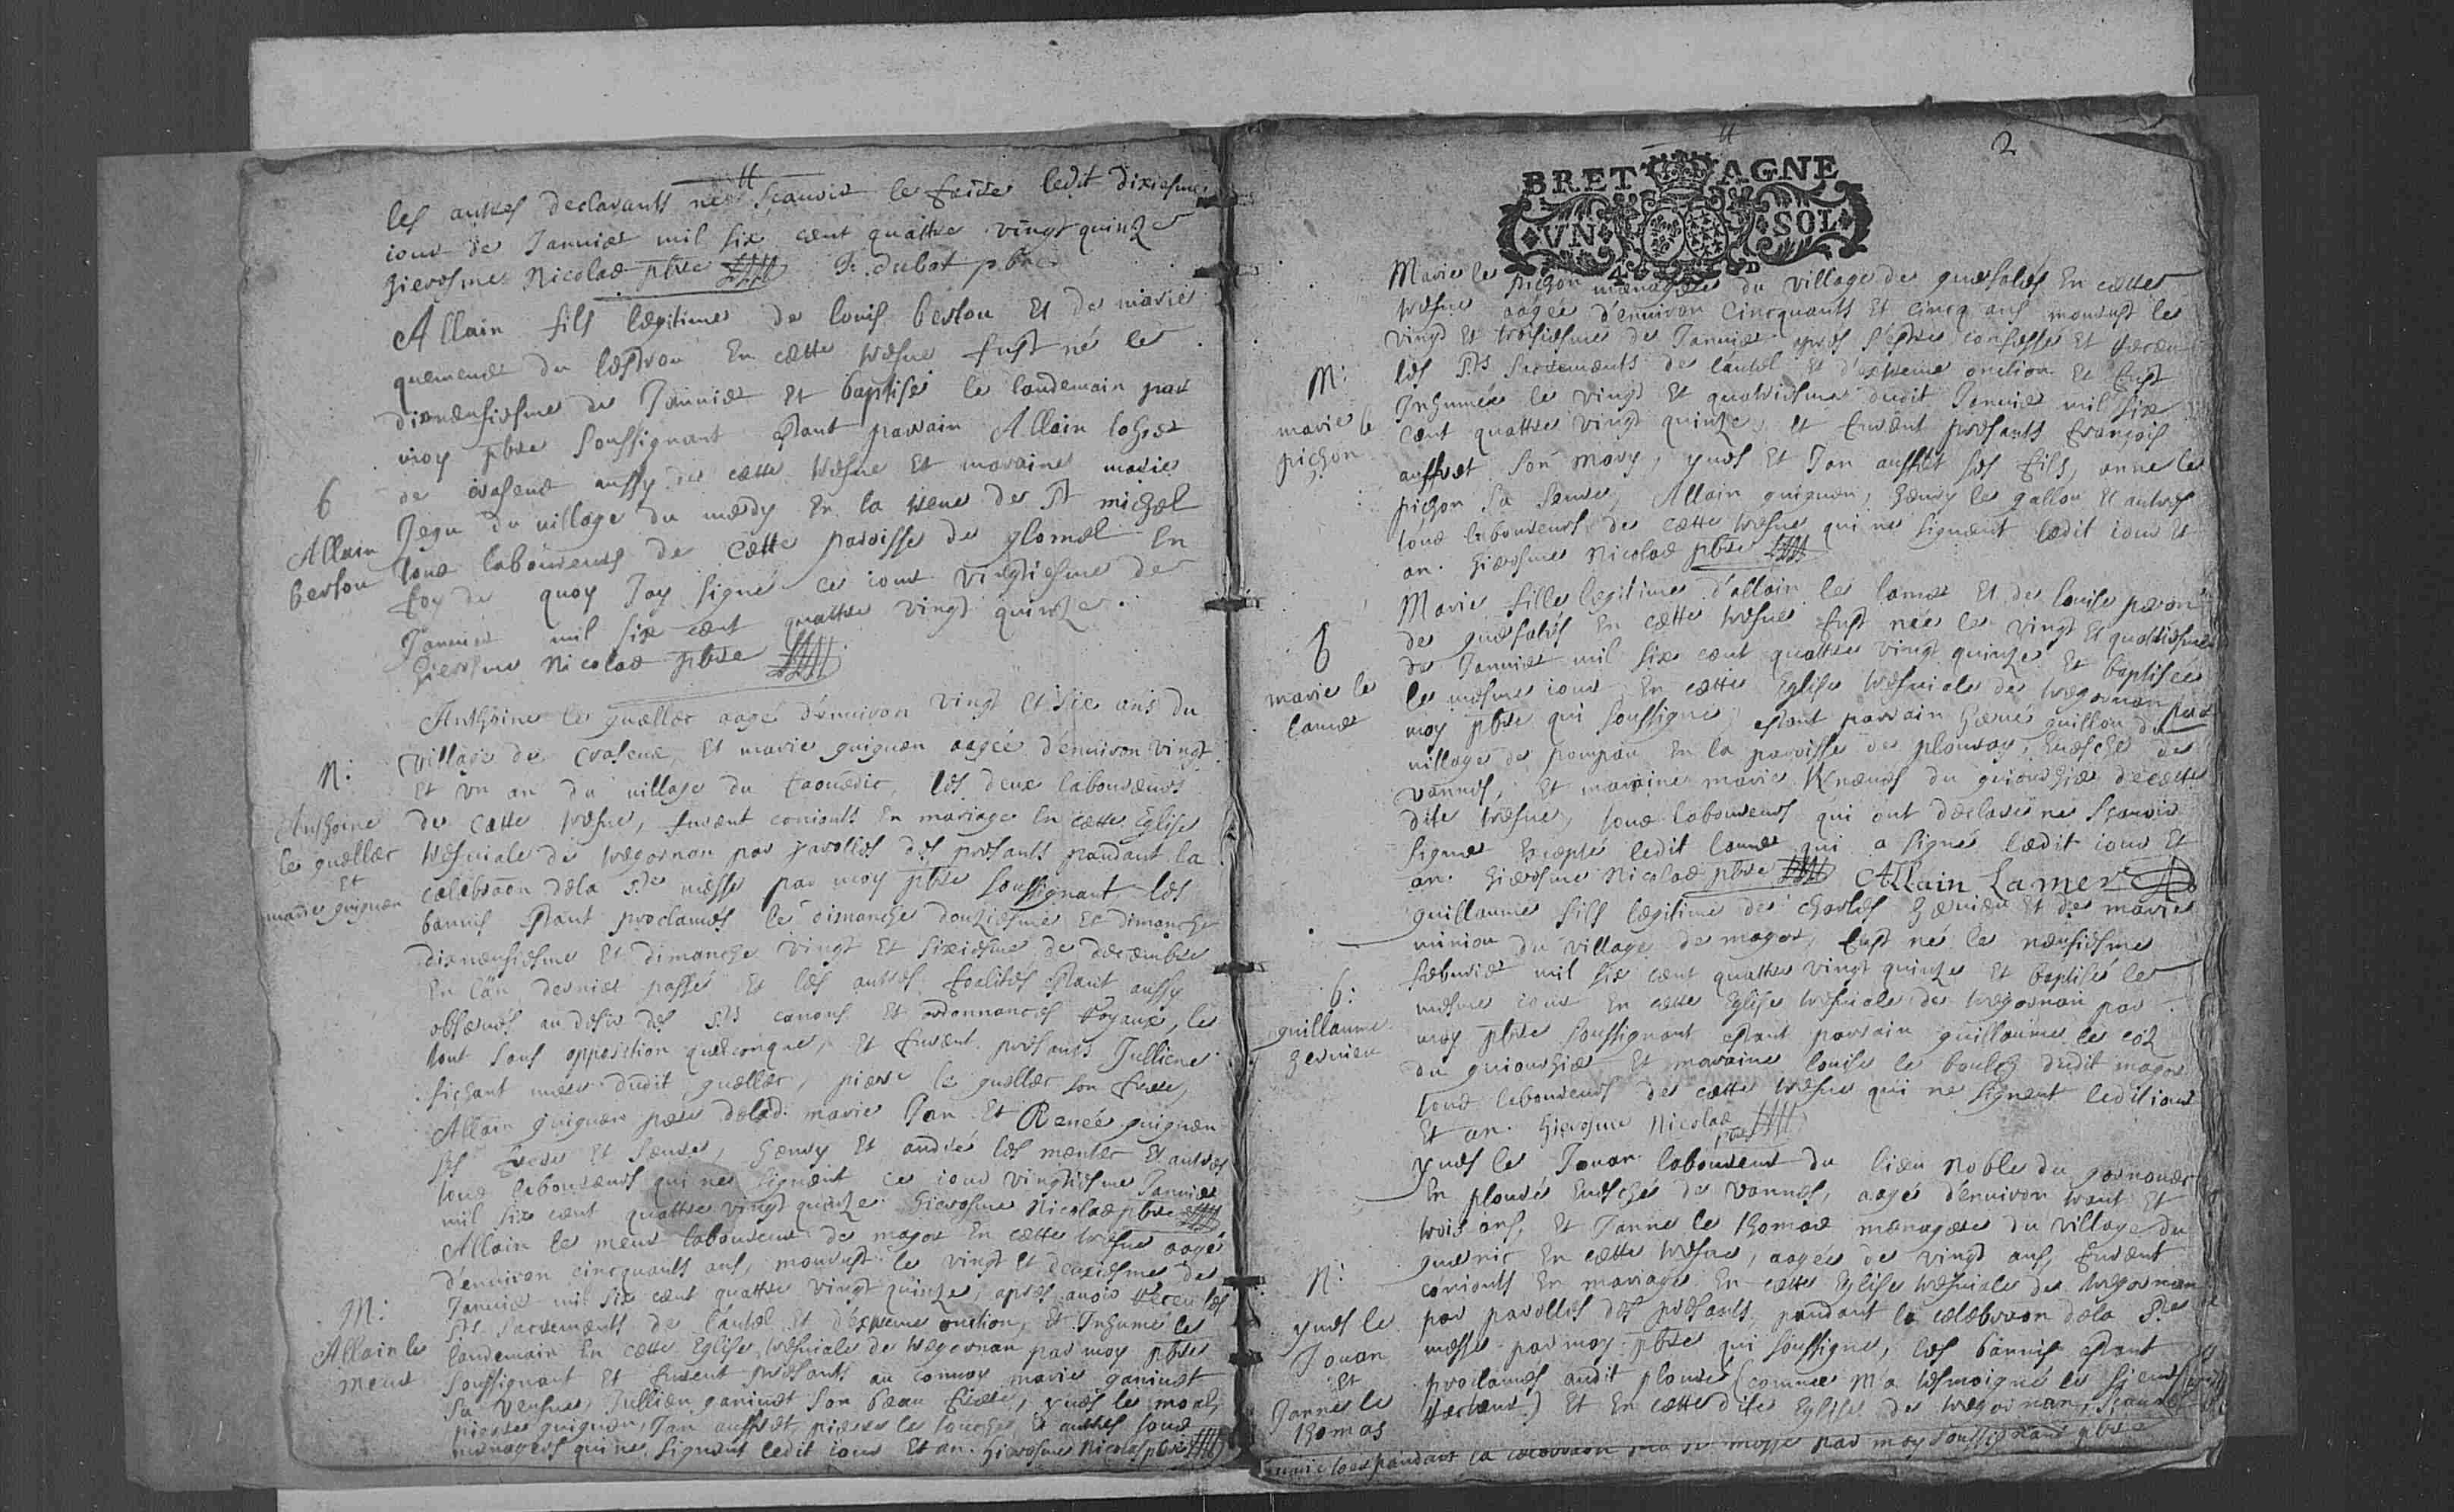 les autres declarants ne scauoir le faire ledit dixiesme
iour de Januier mil six cent quattre vingt quinze
hierosme Nicolas pbre F. dubot pbre
Allain fils legitime de louis berlou et de marie
quemener du lestrou En cette tresue fust né le
dixneufiesme de Januier et baptisé le landemain par
moy pbre soussignant estant parrain Allain
de crasene aussy de cette tresue et maraine marie
Jegu du village du merdy En la treue de St michel
touz laboureurs de cette paroisse de glomel En
foy de quoy Jay signé ce iour vingtiesme de
Januier mil six cent quattre vingt quinze.
hierosme Nicolas pbre
B
Allain
berlou
Anthoine le guellec aagé d'enuiron vingt et six ans du
village de crasene, et marie guiguen aagée d'enuiron vingt
et vn an du village du faouedic, les deux laboureurs
de cette tresue, furent conioints en mariage en cette Eglise
tresuiale de tregornan par parolles des presants pandant la
celebraon dela Ste messe par moy pbre soussignant les
bannis estant proclamés le dimanche douziesme et dimanche
dixneufiesme et dimanche vingt et sixiesme de decembre
En l'an dernier passé et les autres foalites estant aussy
obserués au desir des Sts canons et ordonnances Royaux, le
tout sans opposition quelconque, et furent presants Jullienne
fichant mere dudit guellec, pierre le guellec son frere,
Allain guiguen pere delad. marie Jan et Renée guiguen
ses frere et seure, henry et andré les mentec et autres
touz laboureurs qui ne signent ce iour vingtiesme Januier
mil six cent quattre vingt quinze hierosme Nicolas pbre
N:
Anthoine
le guellec
et
marie guiguen
Allain le meur laboureur de magor En cette tresue aagé
d'enuiron cincquante ans, mourust le vingt et deuxiesme de
Januier mil six cent quattre vingt quinze, apres auoir receu les
Sts sacrements de l'autel et d'extreme onction, et Inhumé le
landemain En cette Eglise tresuiale de tregornan par moy pbre
soussignant et furent presants au conuoy marie ganiuet
sa veufue, Jullien ganiuet son beau frere, yues le moal,
pierre guiguen, Jan auffret, pierre le et autres touz
menagers qui ne signent ledit iour et an. hierosme Nicolas pbre
M:
Allain le
meur
2
BRETAGNE
VN SOL
4 D
Marie le pichon menagere du village de guersales En cette
tresue aagée d'enuiron cincquante et cincq ans mourust le
vingt et troisiesme de Januier apres s'estre confessé et receu
les Sts sacrements de l'autel et d'extreme onction et fust
Inhumée le vingt et quatriesme dudit Januier mil six
cent quattre vingt quinze, et furent presants françois
auffret son mary, yues et Jan auffret ses fils, anne le
pichon sa seure, Allain guiguen, henry le gallou et autres
touz laboureurs de cette tresue qui ne signent ledit iour et
an. hierosme Nicolas pbre
M:
marie le
pichon
Marie fille legitime d'allain le lamer et de louise peron
de guersales En cette tresue fust née le vingt et quatriesme
de Januier mil six cent quattre vingt quinze et baptisée
le mesme iour En cette Eglise tresuiale de tregornan par
moy pbre qui soussigne, estant parrain herué guillou du
village de pompau En la paroisse de plouray, Euesché de
vannes, et maraine marie Kneur du guiourhier de cette
dite tresue, touz laboureurs qui ont declaré ne scauoir
signer Excepté ledit lamer qui a signé ledit iour et
an. hierosme Nicolas pbre Allain Lamer
B
marie le
lamer
Guillaume fils legitime de charles heruieu et de marie
miniou du village de magor, fust né le neufiesme
februier mil six cent quattre vingt quinze et baptisé le
mesme iour en cette Eglise tresuiale de tregornan par
moy pbre soussignant estant parrain guillaume le coz
du guiourhier et maraine louise le boulch dudit magor
touz laboureurs de cette tresue qui ne signent ledit iour
et an. hierosme Nicolas
pbre
b:
guillaume
heruieu
yues le Jouan laboureur du lieu noble du gornouec
En plouré Euesché de vannes, aagé d'enuiron trante et
trois ans, et Janne le thomas menagere du village du
guernic En cette tresue, aagée de vingt ans, furent
conioints En mariage En cette Eglise tresuiale de tregornan
par parolles des presants pandant la celebraon dela Ste
messe par moy pbre qui soussigne, les bannis estant
proclamés audit plouré (comme m'a tesmoigné le sieur
Recteur) et En cette dite Eglise de tregornan, scauoir
N:
yues le
Jouan
et
Janne le
thomas
pandant la celebraon dela Ste messe par moy soussignant pbre